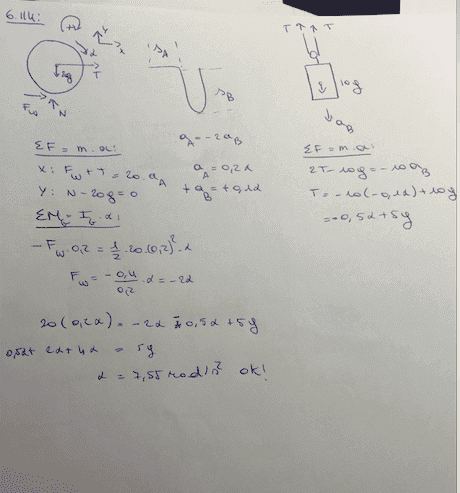 6.114:
+
y
x
α
T
20g
F_w
N
s_A
s_B
T
T
10g
a_B
ΣF = m·a:
X: F_w + T = 20·a_A
Y: N - 20g = 0
a_A = -2a_B
a_A = 0,2α
+a_B = +0,1α
ΣF = m·a:
2T - 10g = -10a_B
T = -10(-0,1α) + 10g
= -0,5α + 5g
ΣM_G = I_G·α:
-F_w·0,2 = 1/2·20·(0,2)²·α
F_w = -0,4/0,2·α = -2α
20(0,2α) = -2α - 0,5α + 5g
0,5α + 2α + 4α = 5g
α = 7,55 rad/s² ok!